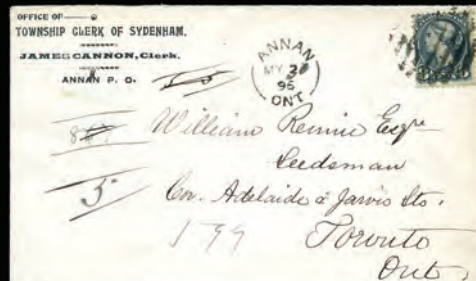 OFFICE OF
TOWNSHIP CLERK OF SYDENHAM.
JAMES CANNON, Clerk.
ANNAN P. O.
ANNAN
MY
95
ONT
William Rennie Esqre
Seedsman
Cor. Adelaide & Jarvis Sts.
Toronto
Ont
5